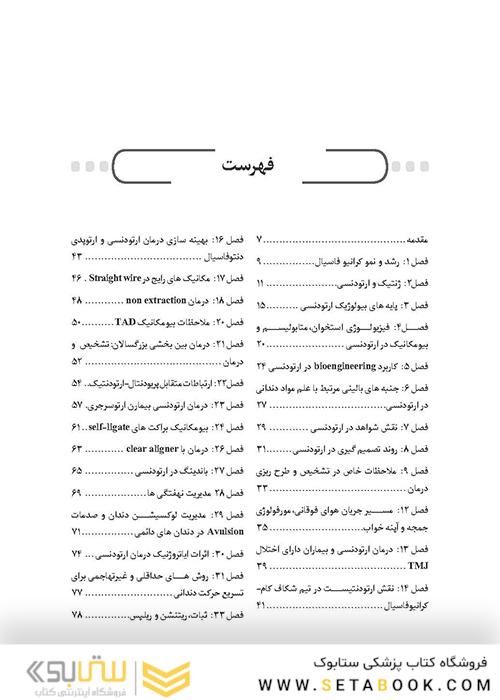 فهرست
مقدمه ........................................... ۷
فصل ۱: رشد و نمو کرانیو فاسیال ................ ۹
فصل۲: ژنتیک و ارتودنسی ..................... ۱۱
فصل ۳: پایه های بیولوژیک ارتودنسی ......... ۱۵
فصل۴: فیزیولوژی استخوان، متابولیسم و
بیومکانیک در ارتودنسی ........................ ۲۰
فصل ۵: کاربرد bioengineering در ارتودنسی ۲۴
فصل ۶: جنبه های بالینی مرتبط با علم مواد دندانی
در ارتودنسی ................................... ۲۷
فصل ۷: نقش شواهد در ارتودنسی ............ ۲۹
فصل ۸: روند تصمیم گیری در ارتودنسی ........ ۳۱
فصل ۹: ملاحظات خاص در تشخیص و طرح ریزی
درمان .......................................... ۳۳
فصل ۱۲: مسیر جریان هوای فوقانی، مورفولوژی
جمجه و آپنه خواب ............................. ۳۵
فصل ۱۳: درمان ارتودنسی و بیماران دارای اختلال
TMJ .......................................... ۳۹
فصل ۱۴: نقش ارتودنتیست در تیم شکاف کام-
کرانیوفاسیال ................................... ۴۱
فصل ۱۶: بهینه سازی درمان ارتودنسی و ارتوپدی
دنتوفاسیال .................................... ۴۳
فصل ۱۷: مکانیک های رایج در Straight wire . ۴۶
فصل ۱۸: درمان non extraction ............ ۴۸
فصل ۲۰: ملاحظات بیومکانیک TAD .......... ۵۰
فصل ۲۱: درمان بین بخشی بزرگسالان: تشخیص و
درمان .......................................... ۵۲
فصل۲۲: ارتباطات متقابل پریودنتال-ارتودنتیک.. ۵۴
فصل ۲۳: درمان ارتودنسی بیمارن ارتوسرجری. ۵۷
فصل ۲۴: بیومکانیک براکت های self-ligate .. ۶۱
فصل ۲۶: درمان با clear aligner ............ ۶۳
فصل ۲۷: باندینگ در ارتودنسی ............... ۶۵
فصل ۲۸ مدیریت نهفتگی ها .................... ۶۹
فصل ۲۹: مدیریت لوکسیشن دندان و صدمات
Avulsion در دندان های دائمی ................ ۷۱
فصل ۳۰: اثرات ایاتروژنیک درمان ارتودنسی... ۷۴
فصل ۳۱: روش های حداقلی و غیرتهاجمی برای
تسریع حرکت دندانی .......................... ۷۷
فصل ۳۳: ثبات، ریتنشن و ریلپس .............. ۷۸
فروشگاه کتاب پزشکی ستابوک
WWW.SETABOOK.COM
فروشگاه اینترنتی کتاب